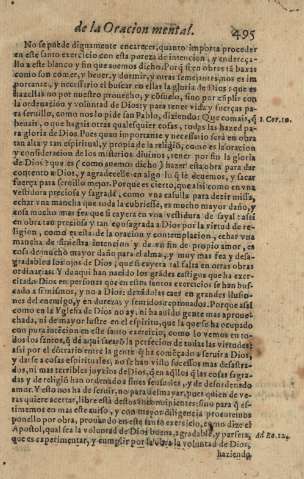 de la Oracion mental. 495
No se puede dignamente encarecer, quanto importa proceder
en este santo exercicio con esta pureza de intencion, y endereça-
llo a este blanco y fin que auemos dicho. Porq̃ si en obras tã baxas
como son comer, y beuer, y dormir, y otras semejantes, nos es im
portante, y necessario el buscar en ellas la gloria de Dios: que es
hazellas no por nuestro prouecho, y cõsuelo, sino por cũplir con
la ordenacion y voluntad de Dios, y para tener vida, y fuerças pa-
ra seruillo, como nos lo pide san Pablo, diziendo: Que comais, q̃ 1. Cor. 10.
bebais, o que hagais otras qualesquier cosas, todas las hazed pa-
ra gloria de Dios. Pues quan importante y necessario serà en obra
tan alta y tan espiritual, y propia de la religiõ, como es la oracion
y consideracion de los misterios diuinos, tener por fin la gloria
de Dios? que es (como auemos dicho) hazer esta obra para dar
contento a Dios, y agradecelle en algo lo q̃ le deuemos, y sacar
fuerças para seruillo mejor. Porque es cierto, que assi como en vna
vestidura preciosa y sagrada, como vna casulla para dezir missa,
echar vna mancha que toda la cubriesse, es mucho mayor daño, y
cosa mucho mas fea que si cayera en vna vestidura de sayal: assi
en obra tan preciosa y tan consagrada a Dios por la virtud de re-
ligion, como es ella de la oracion y contemplacion, echar vna
mancha de siniestra intencion y de vn fin de propio amor, es
cosa de mucho mayor daño para el alma, y muy mas fea y desa-
gradable a los ojos de Dios, que si cayera tal falta en otras obras
ordinarias. Y de aqui han nacido los grãdes castigos que ha exer-
citado Dios en personas que en estos santos exercicios se han bus-
cado a si mismos, y no a Dios: dexãdolas caer en grandes ilusio-
nes del enemigo, y en durezas y sentidos reprouados. Porque assi
como en la Yglesia de Dios no ay, ni ha auido gente mas aproue-
chada, ni de mayor lustre en el espiritu, que la que se ha ocupado
con pura intẽcion en este santo exercicio, como lo vemos en to-
dos los santos, q̃ de aqui sacarõ la perfecion de todas las virtudes:
assi por el cõtrario entre la gente q̃ ha comẽçado a seruir a Dios,
y darse a cosas espirituales, no se han visto sucessos mas desastra-
dos, ni mas terribles joyzios de Dios, q̃ en aq̃llos q̃ las cosas sagra-
das y de religiõ han ordenado a fines sensuales, y de desordenado
amor. Y esto nos ha de seruir, no para desmayar, pues quien de ve-
ras quiere acertar, libre està destos incõuinientes: sino para q̃ es-
temos en mas este auiso, y con mayor diligencia procuremos
ponello por obra, prouando en este santo exercicio, como dize el
Apostol, qual sea la voluntad de Dios buena, agradable, y perfeta, Ad Ro. 12.
que es experimentar, y cumplir por la obra la voluntad de Dios,
haziendo